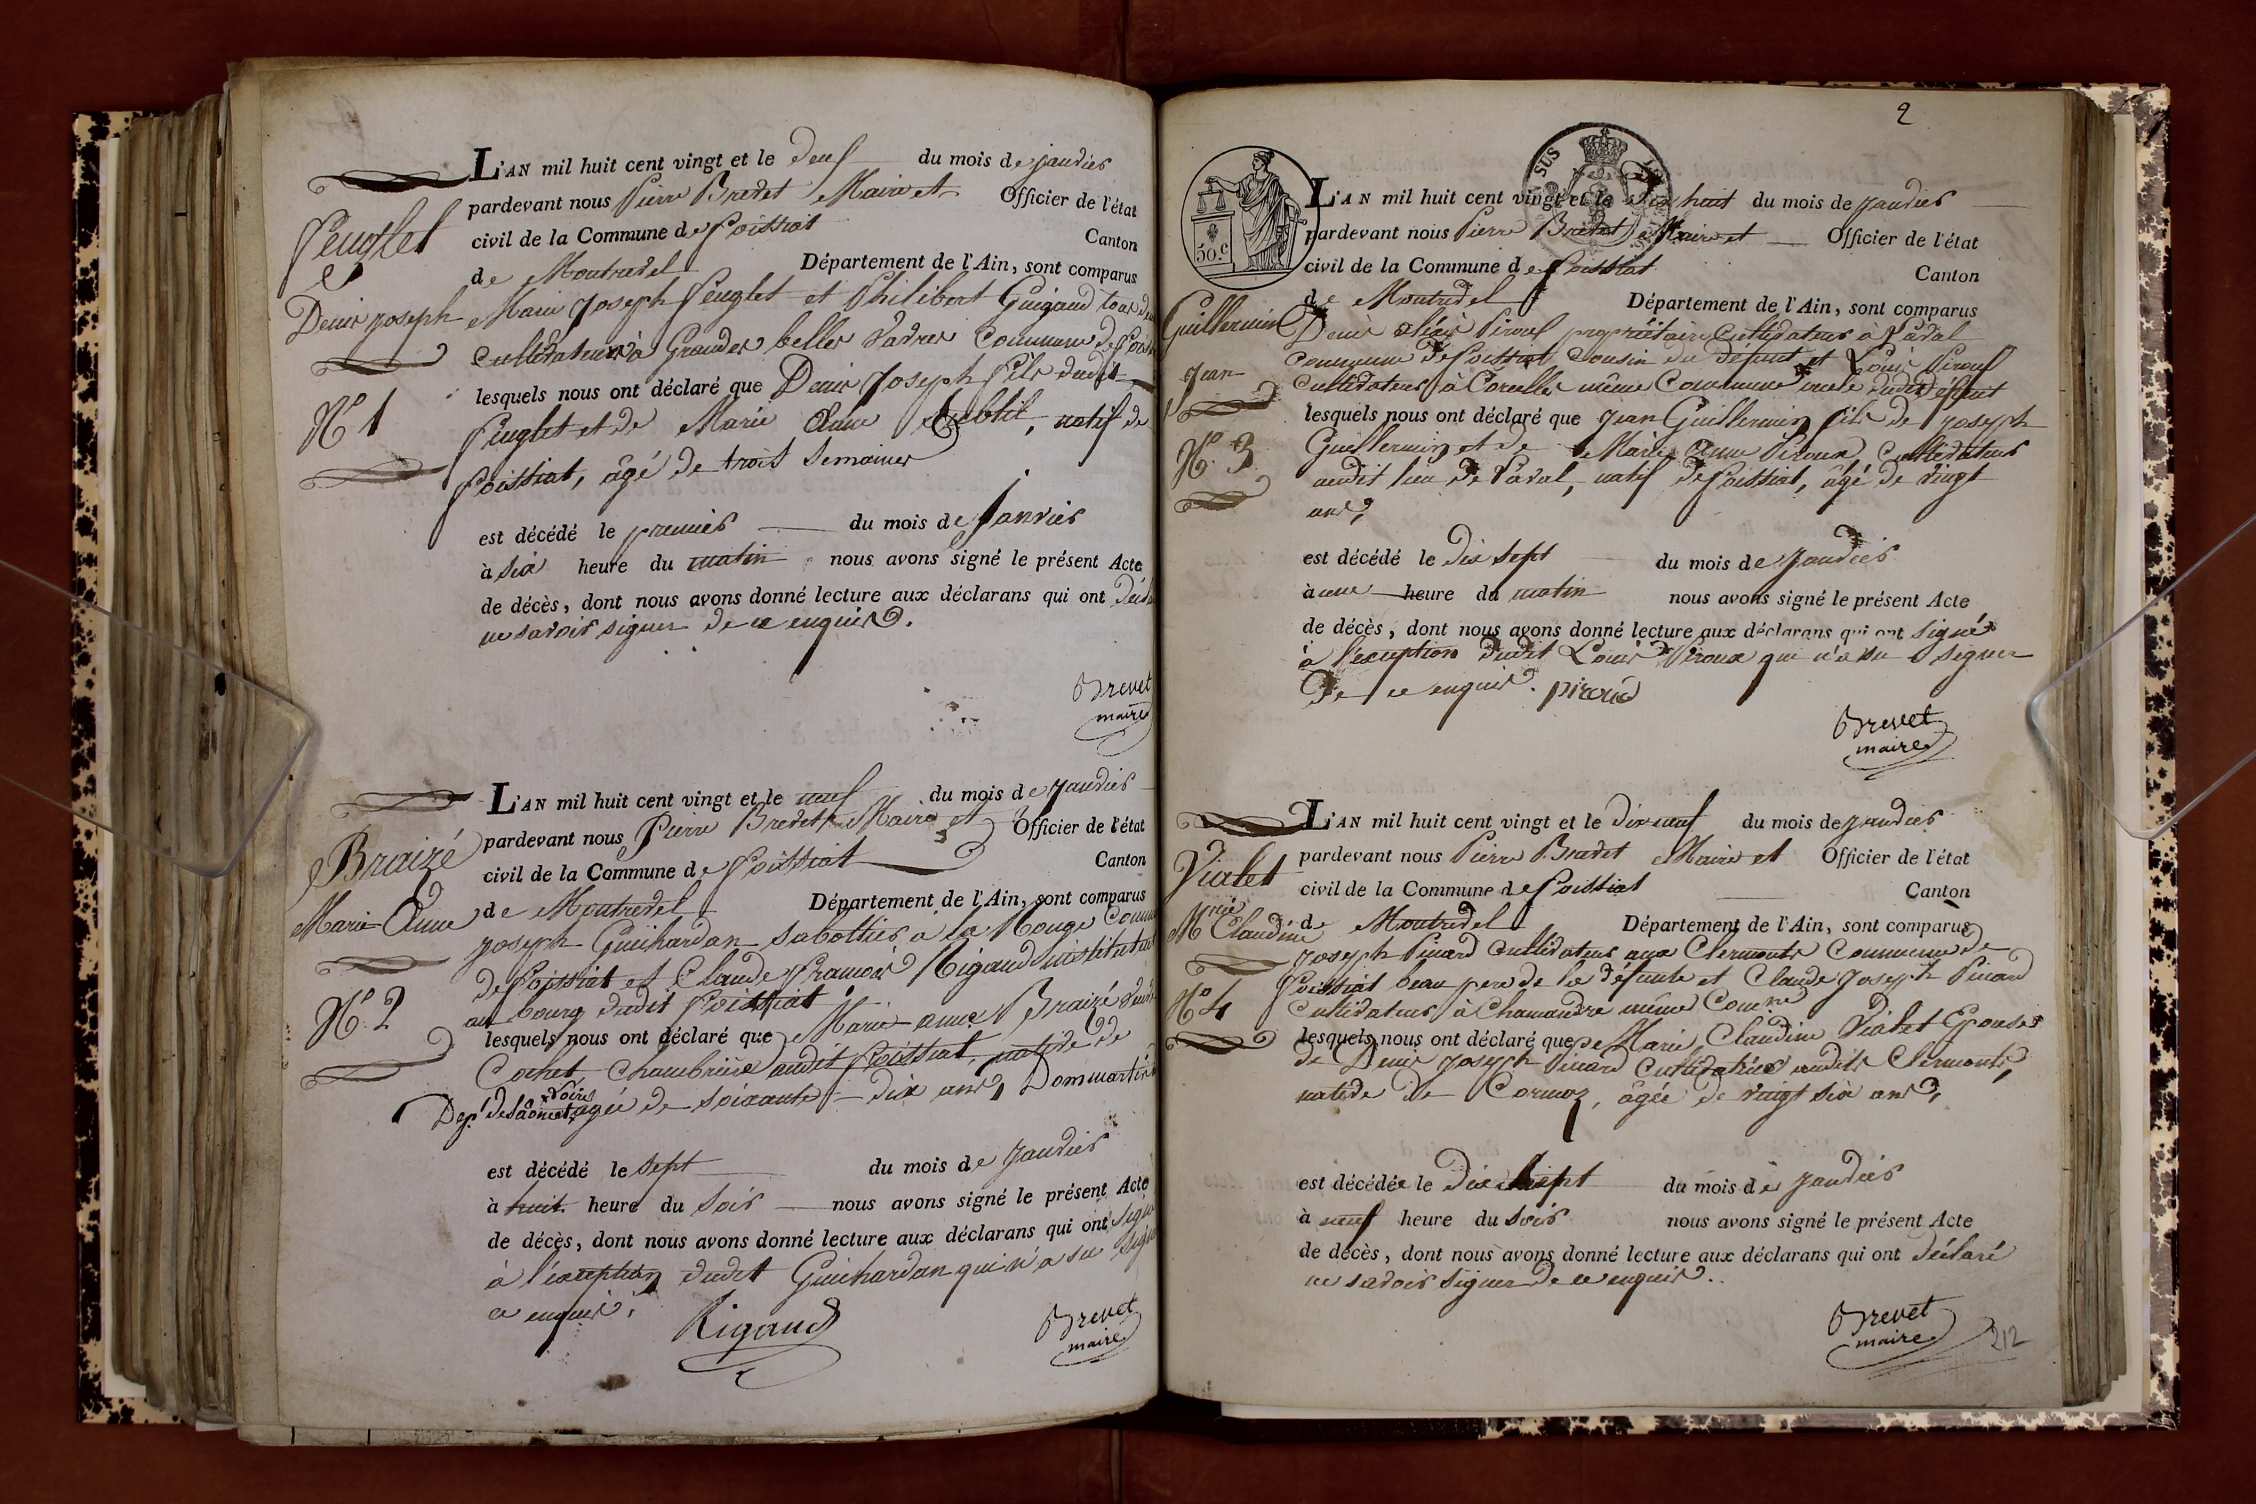 L'AN mil huit cent vingt et le deux du mois de janvier
pardevant nous Pierre Brevet Maire et Officier de l'état
civil de la Commune de Foissiat Canton
de Montrevel Département de l'Ain, sont comparus
Marie Joseph Feuglet et Philibert Guigaud tous
cultivateurs à Grandes belles vavres Commune de
lesquels nous ont déclaré que Denis Joseph fils dudit
Feuglet et de Marie Anne natif de
Foissiat, âgé de trois semaines
est décédé le premier du mois de Janvier
à six heure du matin nous avons signé le présent Acte
de décès, dont nous avons donné lecture aux déclarans qui ont
ne savoir signer de ce enquis.
Brevet
maire
Feuglet
Denis Joseph
No 1
L'AN mil huit cent vingt et le neuf du mois de janvier
pardevant nous Pierre Brevet Maire et Officier de l'état
civil de la Commune de Foissiat Canton
de Montrevel Département de l'Ain, sont comparus
Joseph Guichardan sabottier à la Rouge
de Foissiat et Claude François Rigaud instituteur
au bourg dudit Foissiat
lesquels nous ont déclaré que Marie anne Braizé
Cochet, Chambrière audit Foissiat, native de
Dept de Saone et Loire agée de soixante-dix ans, Dommartin
est décédé le sept du mois de janvier
à huit heure du soir nous avons signé le présent Acte
de décès, dont nous avons donné lecture aux déclarans qui ont signé
à l'exception dudit Guichardan qui n'a su
ce enquis.
Rigaud
Brevet
maire
Braizé
Marie Anne
No 2
2
SUS
50.c
L'AN mil huit cent vingt et le dix huit du mois de janvier
pardevant nous Pierre Brevet Maire et Officier de l'état
civil de la Commune de Foissiat Canton
de Montrevel Département de l'Ain, sont comparus
Denis propriétaire Cultivateur à Laval
commune de Foissiat Cousin du défunt et Louis Piroux
cultivateur à Corcelles même Commune oncle dudit défunt
lesquels nous ont déclaré que jean Guillermin fils de joseph
Guillermin et de Marie Anne Piroux, cultivateur
audit lieu de Laval, natif de Foissiat, âgé de vingt
ans,
est décédé le dix sept du mois de janvier
à une heure du matin nous avons signé le présent Acte
de décès, dont nous avons donné lecture aux déclarans qui ont signé
à l'exception dudit Louis Piroux qui n'a su signer
de ce enquis. piroud
Brevet
maire
Guillermin
Jean
No. 3
L'AN mil huit cent vingt et le dix neuf du mois de janvier
pardevant nous Pierre Brevet Maire et Officier de l'état
civil de la Commune de Foissiat Canton
de Montrevel Département de l'Ain, sont comparus
joseph Pinard cultivateur aux Clermonts Commune de
Foissiat beau pere de la défunte et Claude Joseph Pinard
Cultivateur à Chamandre même Comne
lesquels nous ont déclaré que Marie Claudine Vialet Epouse
de Denis joseph Pinard Cultivatrice audits Clermonts,
native de Cormoz, âgée de vingt six ans,
est décédée le dix sept du mois de janvier
à neuf heure du soir nous avons signé le présent Acte
de décès, dont nous avons donné lecture aux déclarans qui ont déclaré
ne savoir signer de ce enquis.
Brevet
maire
212
Vialet
Mrie Claudine
No 4